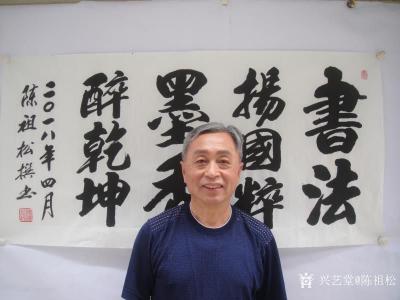 書法
揚國粹
墨香
醉乾坤
二〇一八年四月
陳祖松撰书
兴艺堂@陈祖松